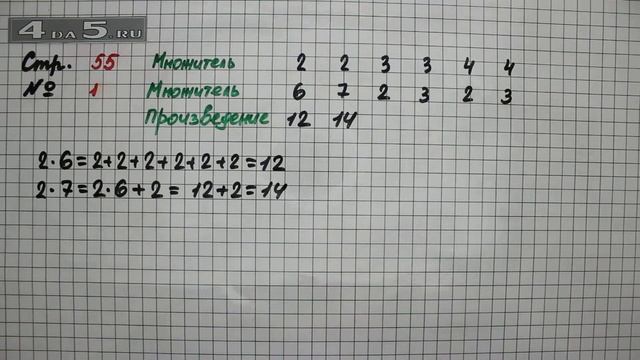 4DA5.RU
Стр. 55 Множитель 2 2 3 3 4 4
№ 1 Множитель 6 7 2 3 2 3
Произведение 12 14
2·6=2+2+2+2+2+2=12
2·7=2·6+2= 12+2=14